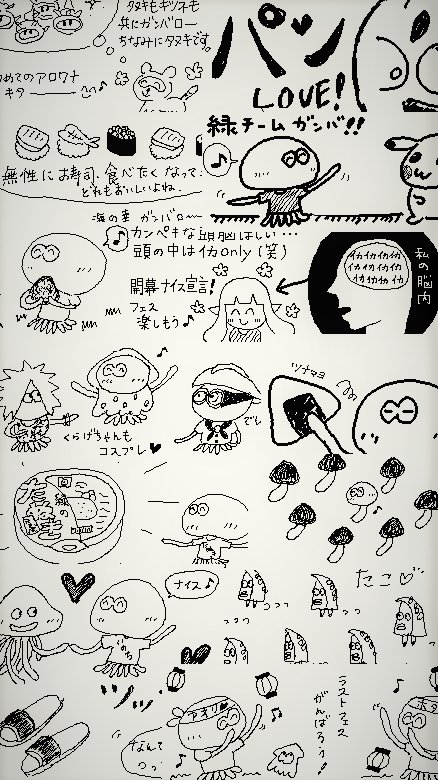 タヌキもキツネも
共にガンバロー
ちなみにタヌキです。
パン
LOVE!
めてのアロワナ
キター
緑チームガンバ!!
無性にお寿司、食べたくなって…
どれもおいしいよね。
海の幸 ガンバロー
カンペキな頭脳ほしい…
頭の中はイカonly(笑)
開幕ナイス宣言!
フェス
楽しもう♪
イカイカイカイカ
イカイカイカイカ
イカイカイカ
私の脳内
くらげちゃんも
コスプレ♥
でし
ツナマヨ
緑の
いのち
ナイス♪
たこ♡
っっっ
っっっ
ラストフェス
がんばろう!
なんで
っ